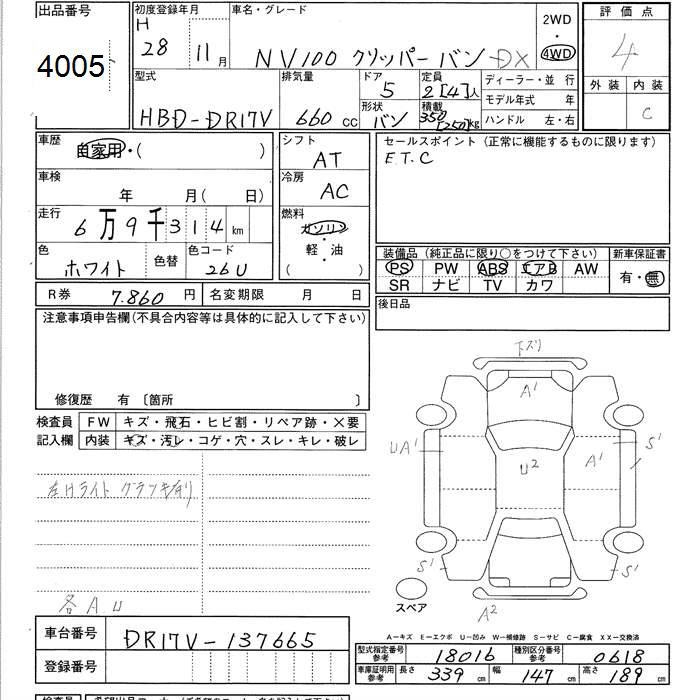 出品番号 初度登録年月 車名・グレード 2WD ・ 4WD 評価点
4005 H 28 11月 NV100 クリッパー バン DX 4
外装 内装
C
型式 排気量 ドア 定員 ディーラー・並行
HBD-DR17V 660 CC 5 2[4]人 モデル年式 年
形状 積載 ハンドル 左・右
バン 350[250]kg
車歴 自家用・( ) シフト AT セールスポイント(正常に機能するものに限ります)
E.T.C
車検 年 月( 日) 冷房 AC
走行 6万9千314km 燃料 ガソリン
・
軽・油
( )
色 ホワイト 色替 色コード 26U
装備品(純正品に限り○をつけて下さい) 新車保証書
PS PW ABS エアB AW 有・無
SR ナビ TV カワ
R券 7.860円 名変期限 月 日 後日品
注意事項申告欄(不具合内容等は具体的に記入して下さい)
修復歴 有〔箇所 〕
検査員 FW キズ・飛石・ヒビ割・リペア跡・×要
記入欄 内装 キズ・汚レ・コゲ・穴・スレ・キレ・破レ
左Hライト
各A.U
下ズリ
A1
UA1 U2 A1 S1
S1 S1
A2
スペア
A-キズ E-エクボ U-凹み W-補修跡 S-サビ C-腐食 XX-交換済
車台番号 DR17V-137665
登録番号
型式指定番号参考 18016 種別区分番号参考 0618
車庫証明用参考 長さ 339cm 幅 147cm 高さ 189cm